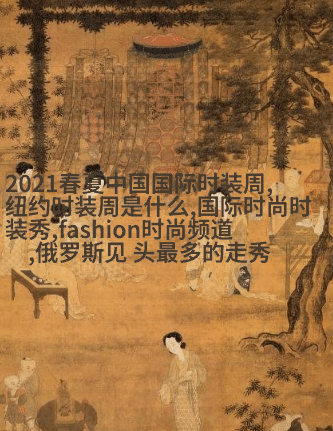 2021春夏中国国际时装周,
纽约时装周是什么,国际时尚时
装秀,fashion时尚频道
,俄罗斯见 头最多的走秀